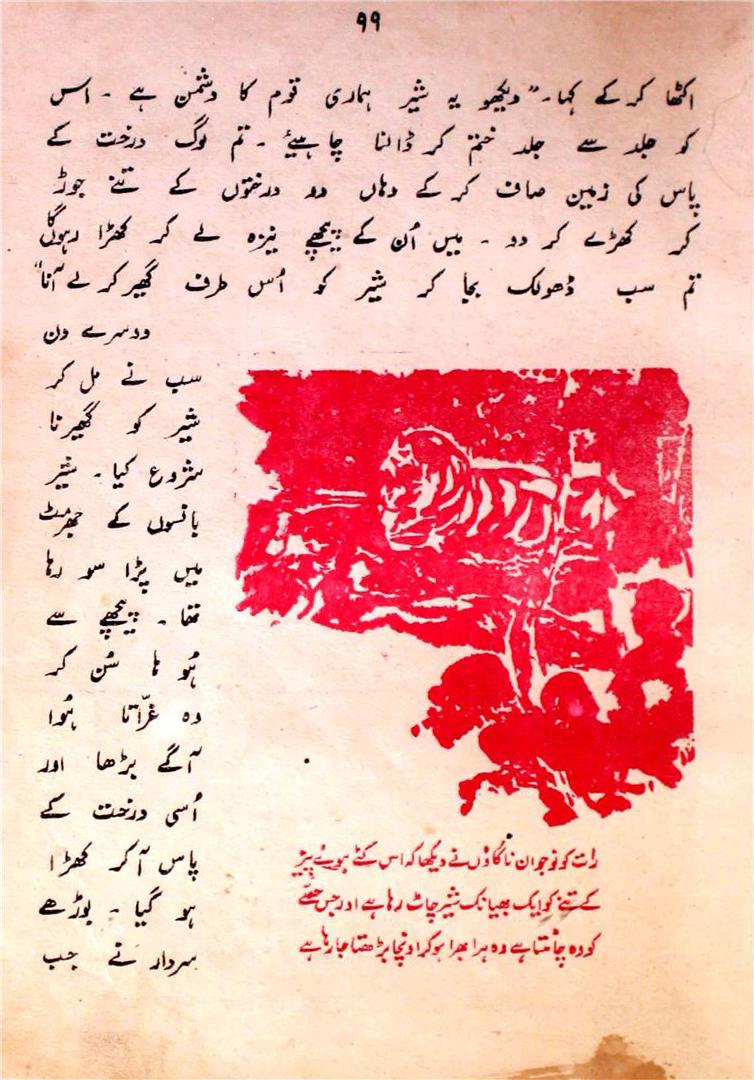 ۹۹
اکٹھا کر کے کہا۔ "دیکھو یہ شیر ہماری قوم کا دشمن ہے ۔ اس
کو جلد سے جلد ختم کر ڈالنا چاہیئے ۔ تم لوگ درخت کے
پاس کی زمین صاف کر کے وہاں دو درختوں کے تنے جوڑ
کر کھڑے کر دو ۔ میں اُن کے پیچھے نیزہ لے کر کھڑا رہوں گا
تم سب ڈھولک بجا کر شیر کو اُس طرف گھیر کر لے آنا"
دوسرے دن
سب نے مل کر
شیر کو گھیرنا
شروع کیا ۔ شیر
بانسوں کے جھرمٹ
میں پڑا سو رہا
تھا ۔ پیچھے سے
ہُو ہا سُن کر
وہ غرّاتا ہُوا
آگے بڑھا اور
اُسی درخت کے
پاس آ کر کھڑا
ہو گیا ۔ بوڑھے
سردار نے جب
رات کو نوجوان ناگاؤں نے دیکھا کہ اس کٹے ہوئے پیڑ
کے تنے کو ایک بھیانک شیر چاٹ رہا ہے اور جس حصّے
کو وہ چاٹتا ہے وہ ہرا بھرا ہو کر اونچا بڑھتا جا رہا ہے